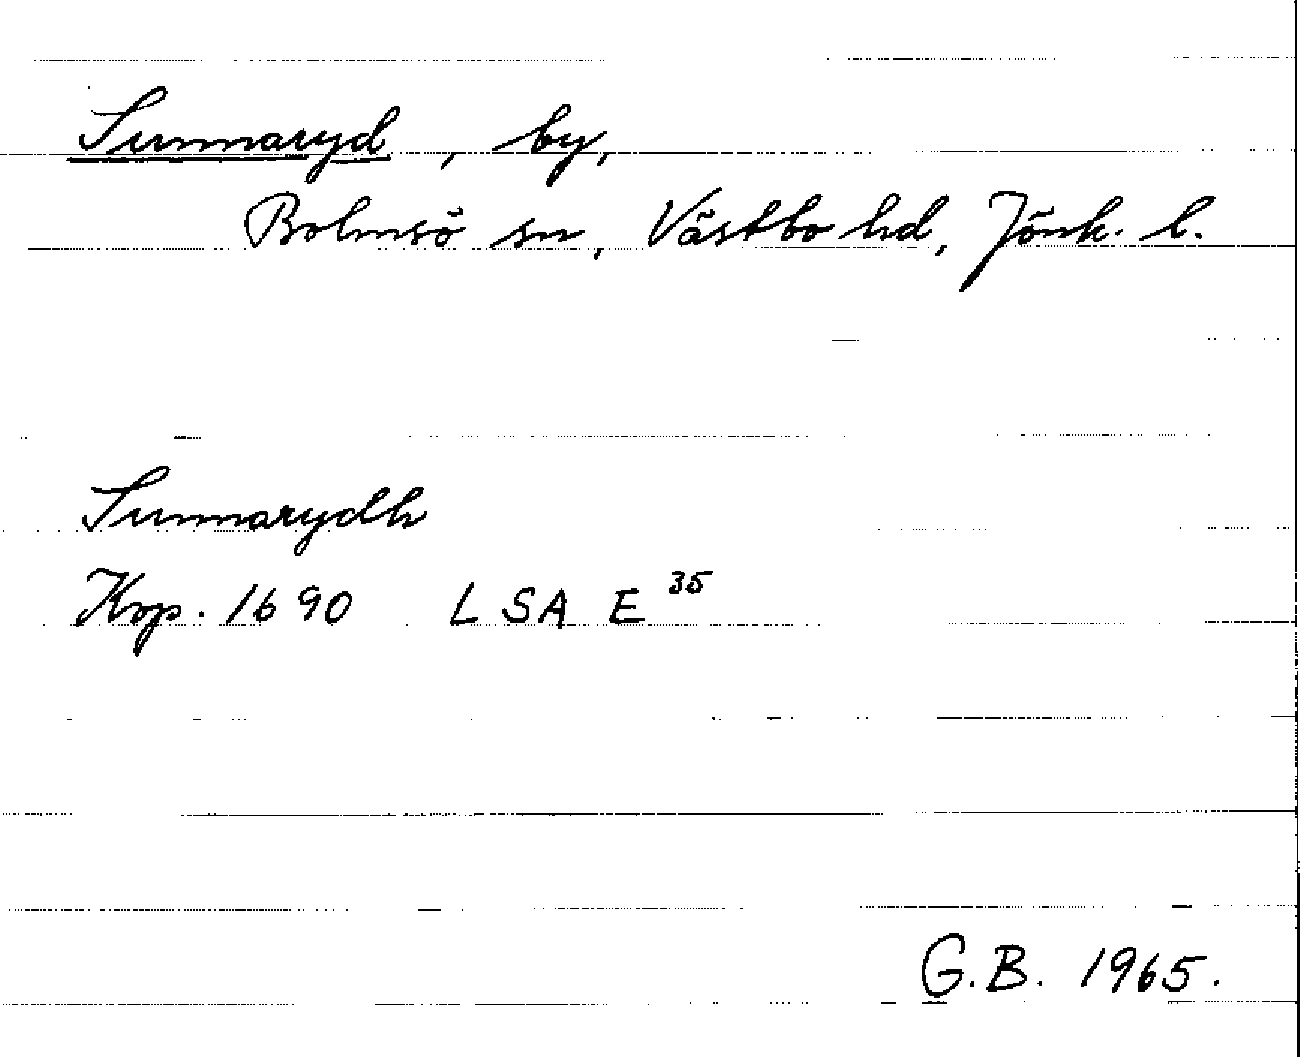 Sunnaryd, by,
Bolmsö sn, Västbo hd, Jönk. l.
Sunnarydh
Kop. 1690 LSA E 35
G.B. 1965.